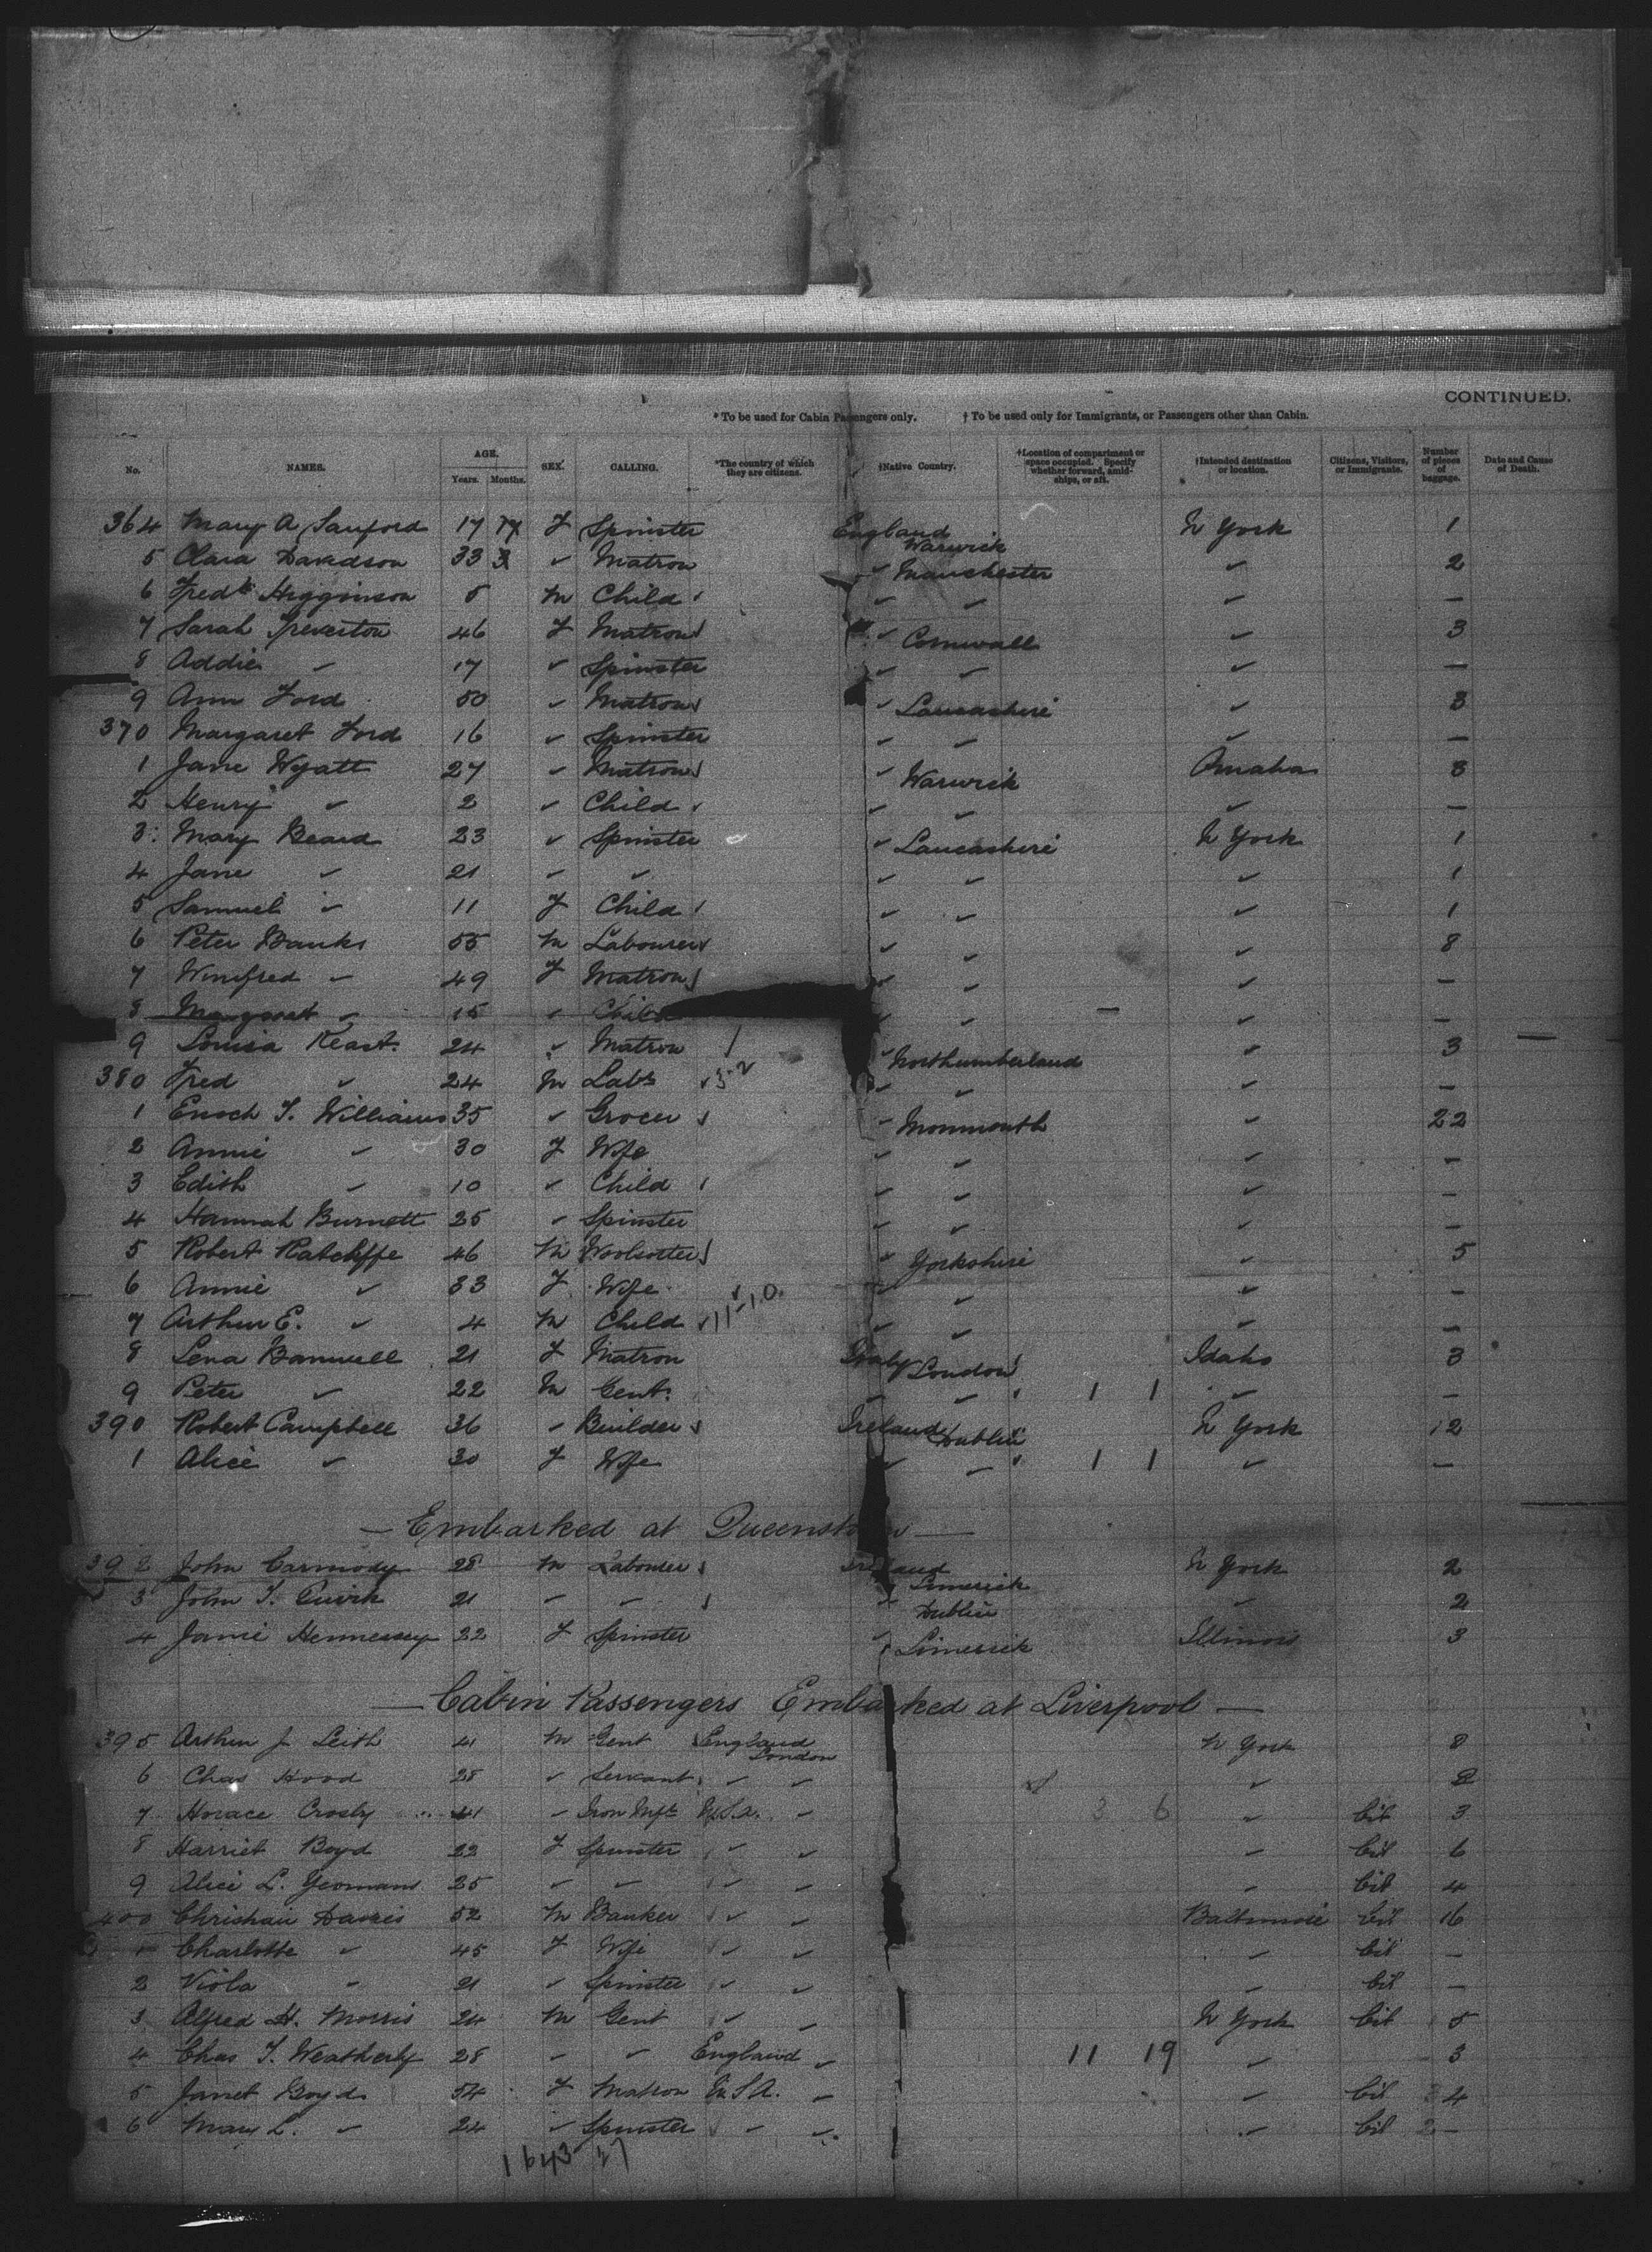 CONTINUED.
* To be used for Cabin Passengers only. † To be used only for Immigrants, or Passengers other than Cabin.
No. NAMES. AGE. Years. Months. SEX. CALLING. *The country of which they are citizens. †Native Country. †Location of compartment or space occupied. Specify whether forward, amidships, or aft. †Intended destination or location. Citizens, Visitors, or Immigrants. Number of pieces of baggage. Date and Cause of Death.
364 Mary A Sanford 17 F Spinster England Warwick N York 1
5 Clara Davidson 33 ✓ Matron ✓ Manchester ✓ 2
6 Fredk Higginson 5 M Child ✓ ✓ ✓ —
7 Sarah Treverton 46 F Matron ✓ Cornwall ✓ 3
8 Addie ✓ 17 ✓ Spinster ✓ ✓ ✓ —
9 Ann Ford 50 ✓ Matron ✓ Lancashire ✓ 3
370 Margaret Ford 16 ✓ Spinster ✓ ✓ ✓ —
1 Jane Wyatt 27 ✓ Matron ✓ Warwick Omaha 3
2 Henry ✓ 2 ✓ Child ✓ ✓ ✓ —
3 Mary Beard 23 ✓ Spinster ✓ Lancashire N York 1
4 Jane ✓ 21 ✓ ✓ ✓ ✓ ✓ 1
5 Samuel ✓ 11 F Child ✓ ✓ ✓ 1
6 Peter Banks 55 M Labourer ✓ ✓ ✓ 8
7 Winifred ✓ 49 F Matron ✓ ✓ ✓ —
8 Margaret ✓ 15 ✓ Child ✓ ✓ ✓ —
9 Louisa Keast 24 ✓ Matron ✓ Northumberland ✓ 3
380 Fred ✓ 24 M Labr ✓ ✓ ✓ —
1 Enoch T. Williams 35 ✓ Grocer ✓ Monmouth ✓ 22
2 Annie ✓ 30 F Wife ✓ ✓ ✓ —
3 Edith ✓ 10 ✓ Child ✓ ✓ ✓ —
4 Hannah Burnett 25 ✓ Spinster ✓ ✓ ✓ —
5 Robert Ratcliffe 46 M Woolsorter ✓ Yorkshire ✓ 5
6 Annie ✓ 33 F Wife ✓ ✓ ✓ —
7 Arthur E. ✓ 4 M Child ✓ 11-1.0. ✓ ✓ ✓ —
8 Lena Banwell 21 F Matron Italy London Idaho 3
9 Peter ✓ 22 M Gent. ✓ ✓ 1 1 ✓ —
390 Robert Campbell 36 ✓ Builder Ireland Dublin N York 12
1 Alice ✓ 30 F Wife ✓ ✓ 1 1 ✓ —
— Embarked at Queenstown —
392 John Carmody 28 M Labourer Ireland Limerick N York 2
3 John T. Quirk 21 ✓ ✓ ✓ Dublin ✓ 2
4 Janie Hennessey 22 F Spinster ✓ Limerick Illinois 3
— Cabin Passengers Embarked at Liverpool —
395 Arthur J Leith 41 M Gent England London N York 8
6 Chas Hood 28 ✓ Servant ✓ ✓ ✓ 2
7 Horace Crosby 41 ✓ Iron Mfr U.S.A. ✓ 3 6 ✓ Cit 3
8 Harriet Boyd 22 F Spinster ✓ ✓ ✓ Cit 6
9 Alice L. Yeomans 25 ✓ ✓ ✓ ✓ ✓ Cit 4
400 Christian Davies 52 M Banker ✓ ✓ Baltimore Cit 16
1 Charlotte ✓ 45 F Wife ✓ ✓ ✓ Cit —
2 Viola ✓ 21 ✓ Spinster ✓ ✓ ✓ Cit —
3 Alfred H. Morris 24 M Gent ✓ ✓ N York Cit 5
4 Chas T. Weatherly 28 ✓ ✓ England ✓ 11 19 ✓ 3
5 Janet Boyd 54 F Matron U.S.A. ✓ ✓ Cit 4
6 Mary L. ✓ 24 ✓ Spinster ✓ ✓ ✓ Cit —
1643